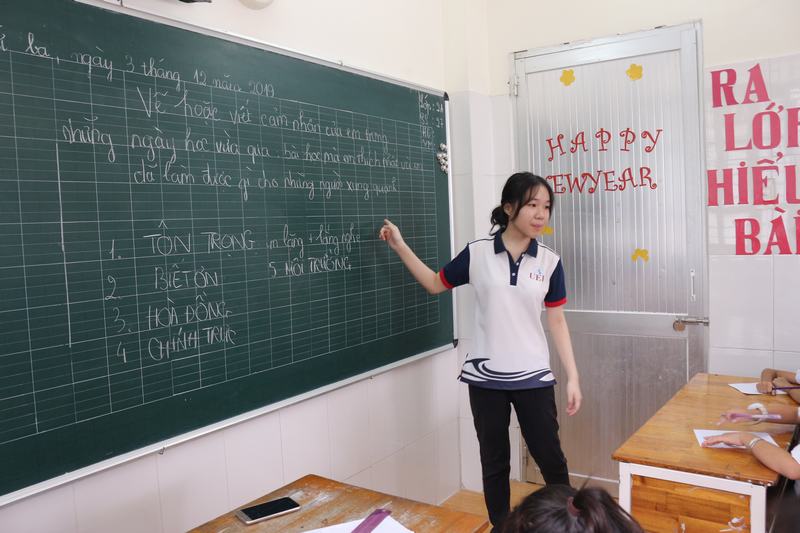 ba, ngày 3 tháng 12 năm 2019
Vẽ hoặc viết cảm nhận của em trong
những ngày học vừa qua, bài học mà em thích nhất và em
đã làm được gì cho những người xung quanh
1. TÔN TRỌNG im lặng + lắng nghe
2 BIẾT ƠN 5. MÔI TRƯỜNG
3. HÒA ĐỒNG
4 CHÍNH TRỰC
HAPPY
EWYEAR
RA
LỚP
HIỂU
BÀI
UEF